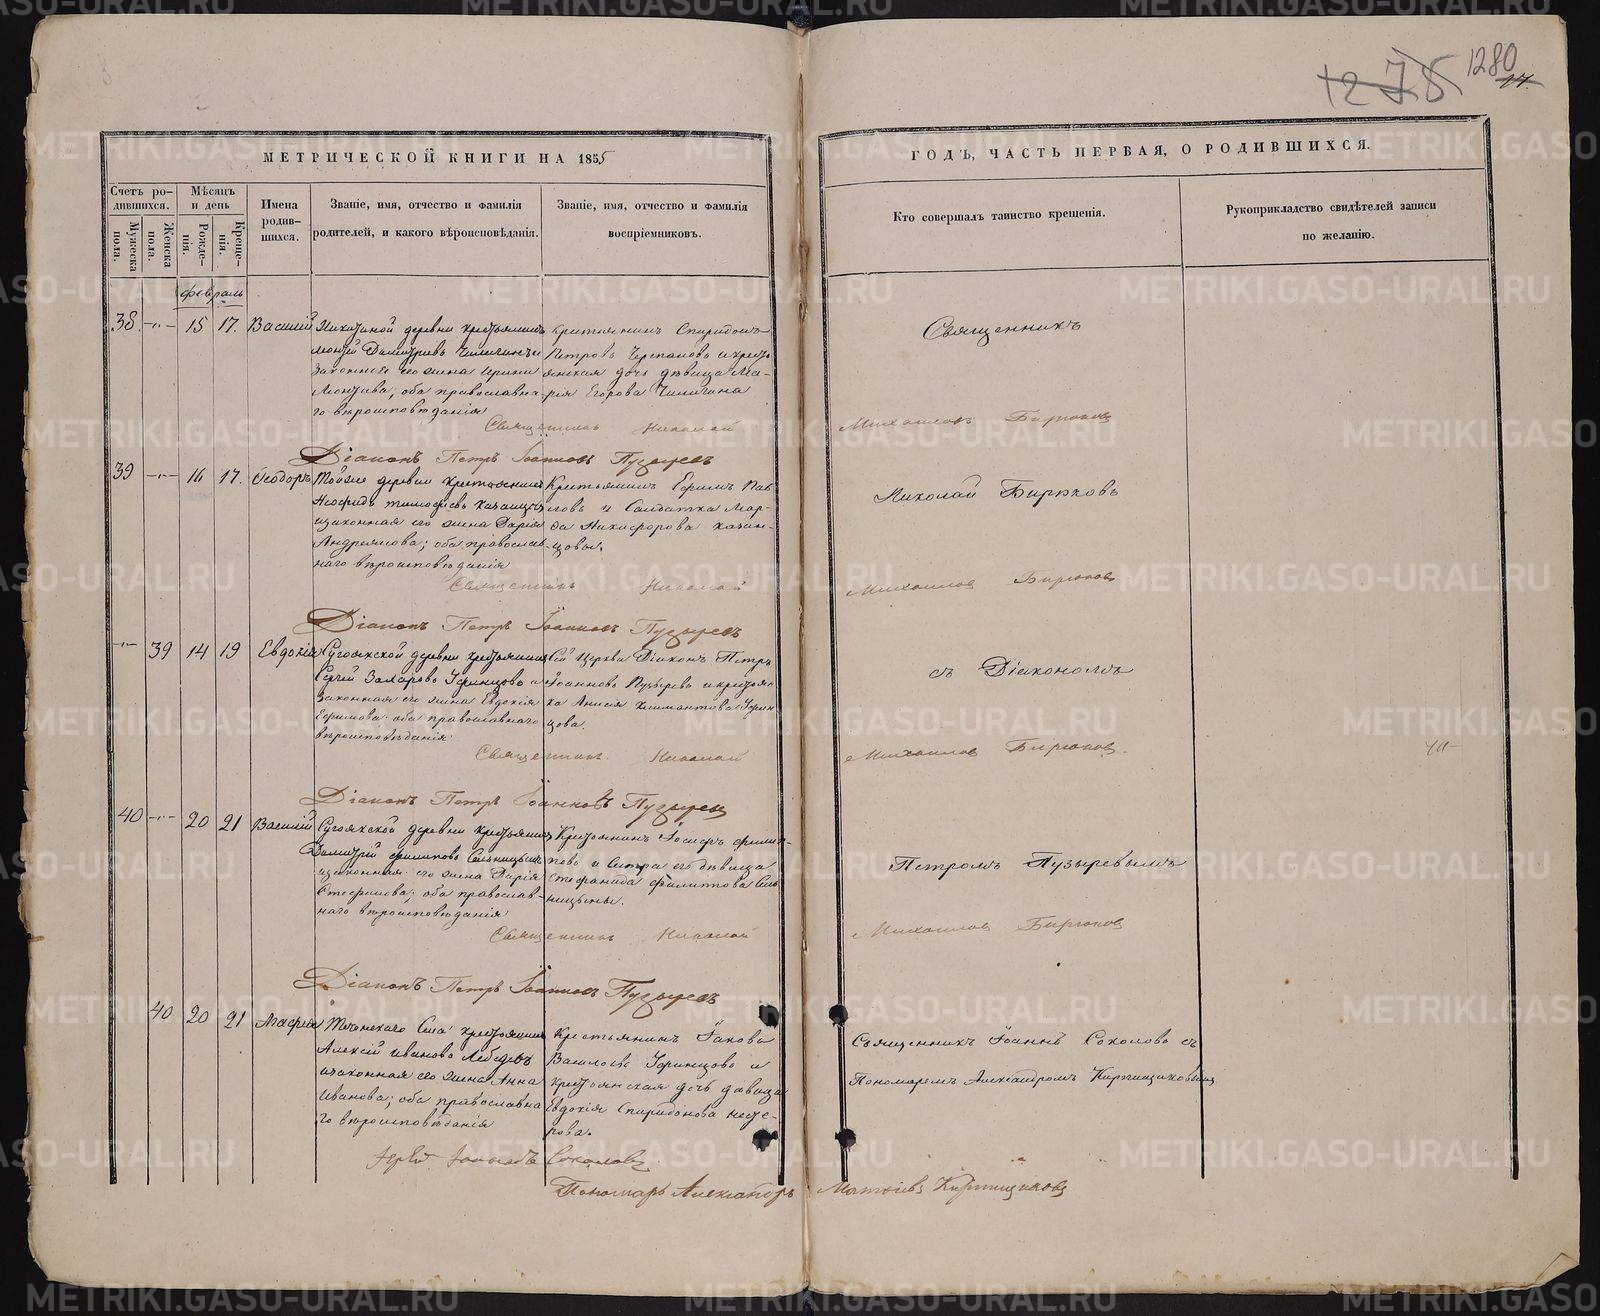 1278 1280
17.
МЕТРИЧЕСКОЙ КНИГИ НА 1855
ГОДЪ, ЧАСТЬ ПЕРВАЯ, О РОДИВШИХСЯ.
Счетъ ро-
дившихся.
Мужеска
пола.
Женска
пола.
Мѣсяцъ
и день
Рожде-
нія.
Креще-
нія.
Имена
родив-
шихся.
Званіе, имя, отчество и фамилія
родителей, и какого вѣроисповѣданія.
Званіе, имя, отчество и фамилія
воспріемниковъ.
Кто совершалъ таинство крещенія.
Рукоприкладство свидѣтелей записи
по желанію.
февраль
38. 15 17. Василий
деревни крестьянинъ
Димитріевъ
законная его жена Ирина
оба православна-
го вѣроисповѣданія
крестьянинъ Спиридонъ
Петровъ Черепановъ и кресть
янская дочь дѣвица Ма-
рія Егорова Чилигина
Священникъ
Священникъ Николай Михаиловъ Бирюковъ
Діаконъ Петръ Іоанновъ Пузыревъ
39 16 17. Ѳеодоръ
Тойже деревни крестьянинъ
Тимофеевъ
изаконная его жена Дарія
Андреянова; оба православ-
наго вѣроисповѣданія
Крестьянинъ Ефимъ Пав
ловъ и Солдатка Мар-
ѳа Никифорова казан-
цовы.
Николай Бирюковъ
Священникъ Николай Михаиловъ Бирюковъ
Діаконъ Петръ Іоанновъ Пузыревъ
39 14 19 Евдокія
Сугоякской деревни крестьянинъ
Сергей Захаровъ Уфинцовъ и
Законная его жена Евдокія
Ефимова оба православнаго
вѣроисповѣданія
Сей Церкви Діаконъ Петръ
Іоанновъ Пузыревъ и крестьян
ка Анисія Климантова Уфин
цова.
съ Діакономъ
Священникъ Николай Михаиловъ Бирюковъ.
Діаконъ Петръ Іоанновъ Пузыревъ
40 20 21 Василий
Сугоякской деревни крестьянинъ
Димитрій филиповъ
изаконная его жена Дарія
Стефанова; оба православ-
наго вѣроисповѣданія
Крестьянинъ Іосифъ филип-
повъ и Сестра его дѣвица
Стефанида филиппова Сель
ницыны.
Петромъ Пузыревымъ
Священникъ Николай Михаиловъ Бирюковъ
Діаконъ Петръ Іоанновъ Пузыревъ
40 20 21
крестьянинъ
Алексій Ивановъ Лебедевъ
изаконная его жена Анна
Иванова; оба православна
го вѣроисповѣданія
Крестьянинъ Іаковъ
Васильевъ Уфинцовъ и
крестьянская дочь дѣвица
Евдокія Спиридонова Несте-
рова.
Священникъ Іоаннъ Соколовъ съ
Пономаремъ Александромъ Кирпищиковымъ
Іерей Іоаннъ Соколовъ
Пономарь Александръ Матѳіевъ Кирпищиковъ
METRIKI.GASO-URAL.RU